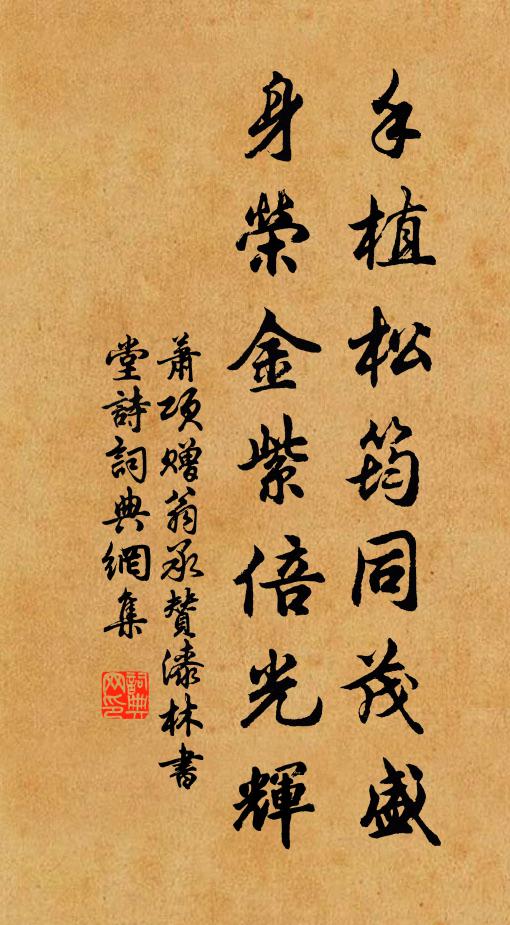 手植松筠同茂盛
身榮金紫倍光輝
蕭項贈翁承贊漆林書
堂詩詞典網集
詞典網印